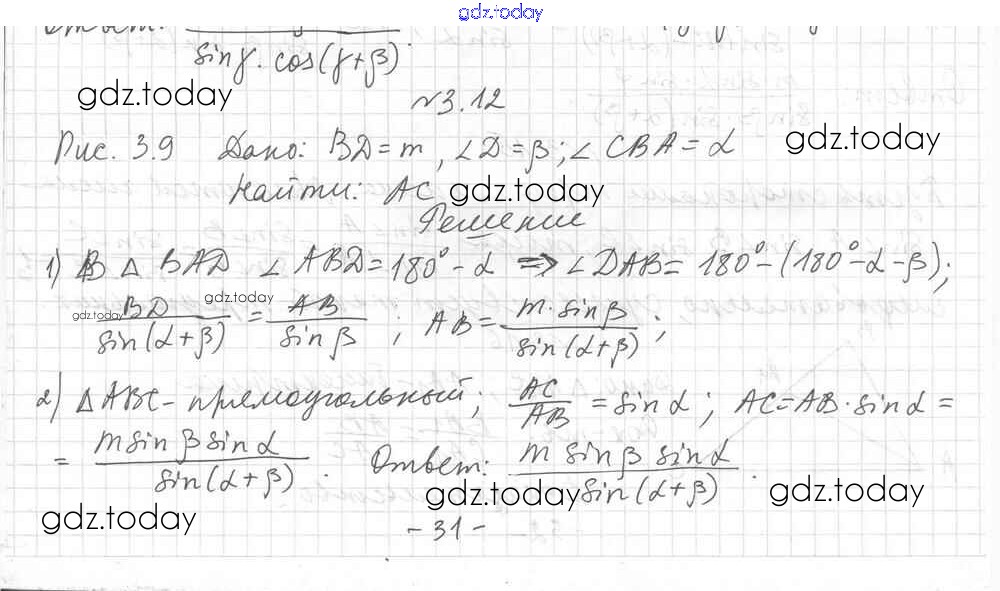 gdz.today
Ответ: sinγ·cos(γ+β).
gdz.today
№3.12
Рис. 3.9 Дано: BD=m, ∠D=β; ∠CBA=α gdz.today
Найти: AC gdz.today
Решение
1) В △ BAD ∠ABD=180°-α => ∠DAB= 180°-(180°-α-β);
BD/sin(α+β) = AB/sinβ ; AB= m·sinβ/sin(α+β) ;
gdz.today gdz.today
2) △ABC-прямоугольный; AC/AB = sinα; AC=AB·sinα=
= m sinβ sinα/sin(α+β) . Ответ: m sinβ sinα/sin(α+β) .
gdz.today gdz.today gdz.today
-31-